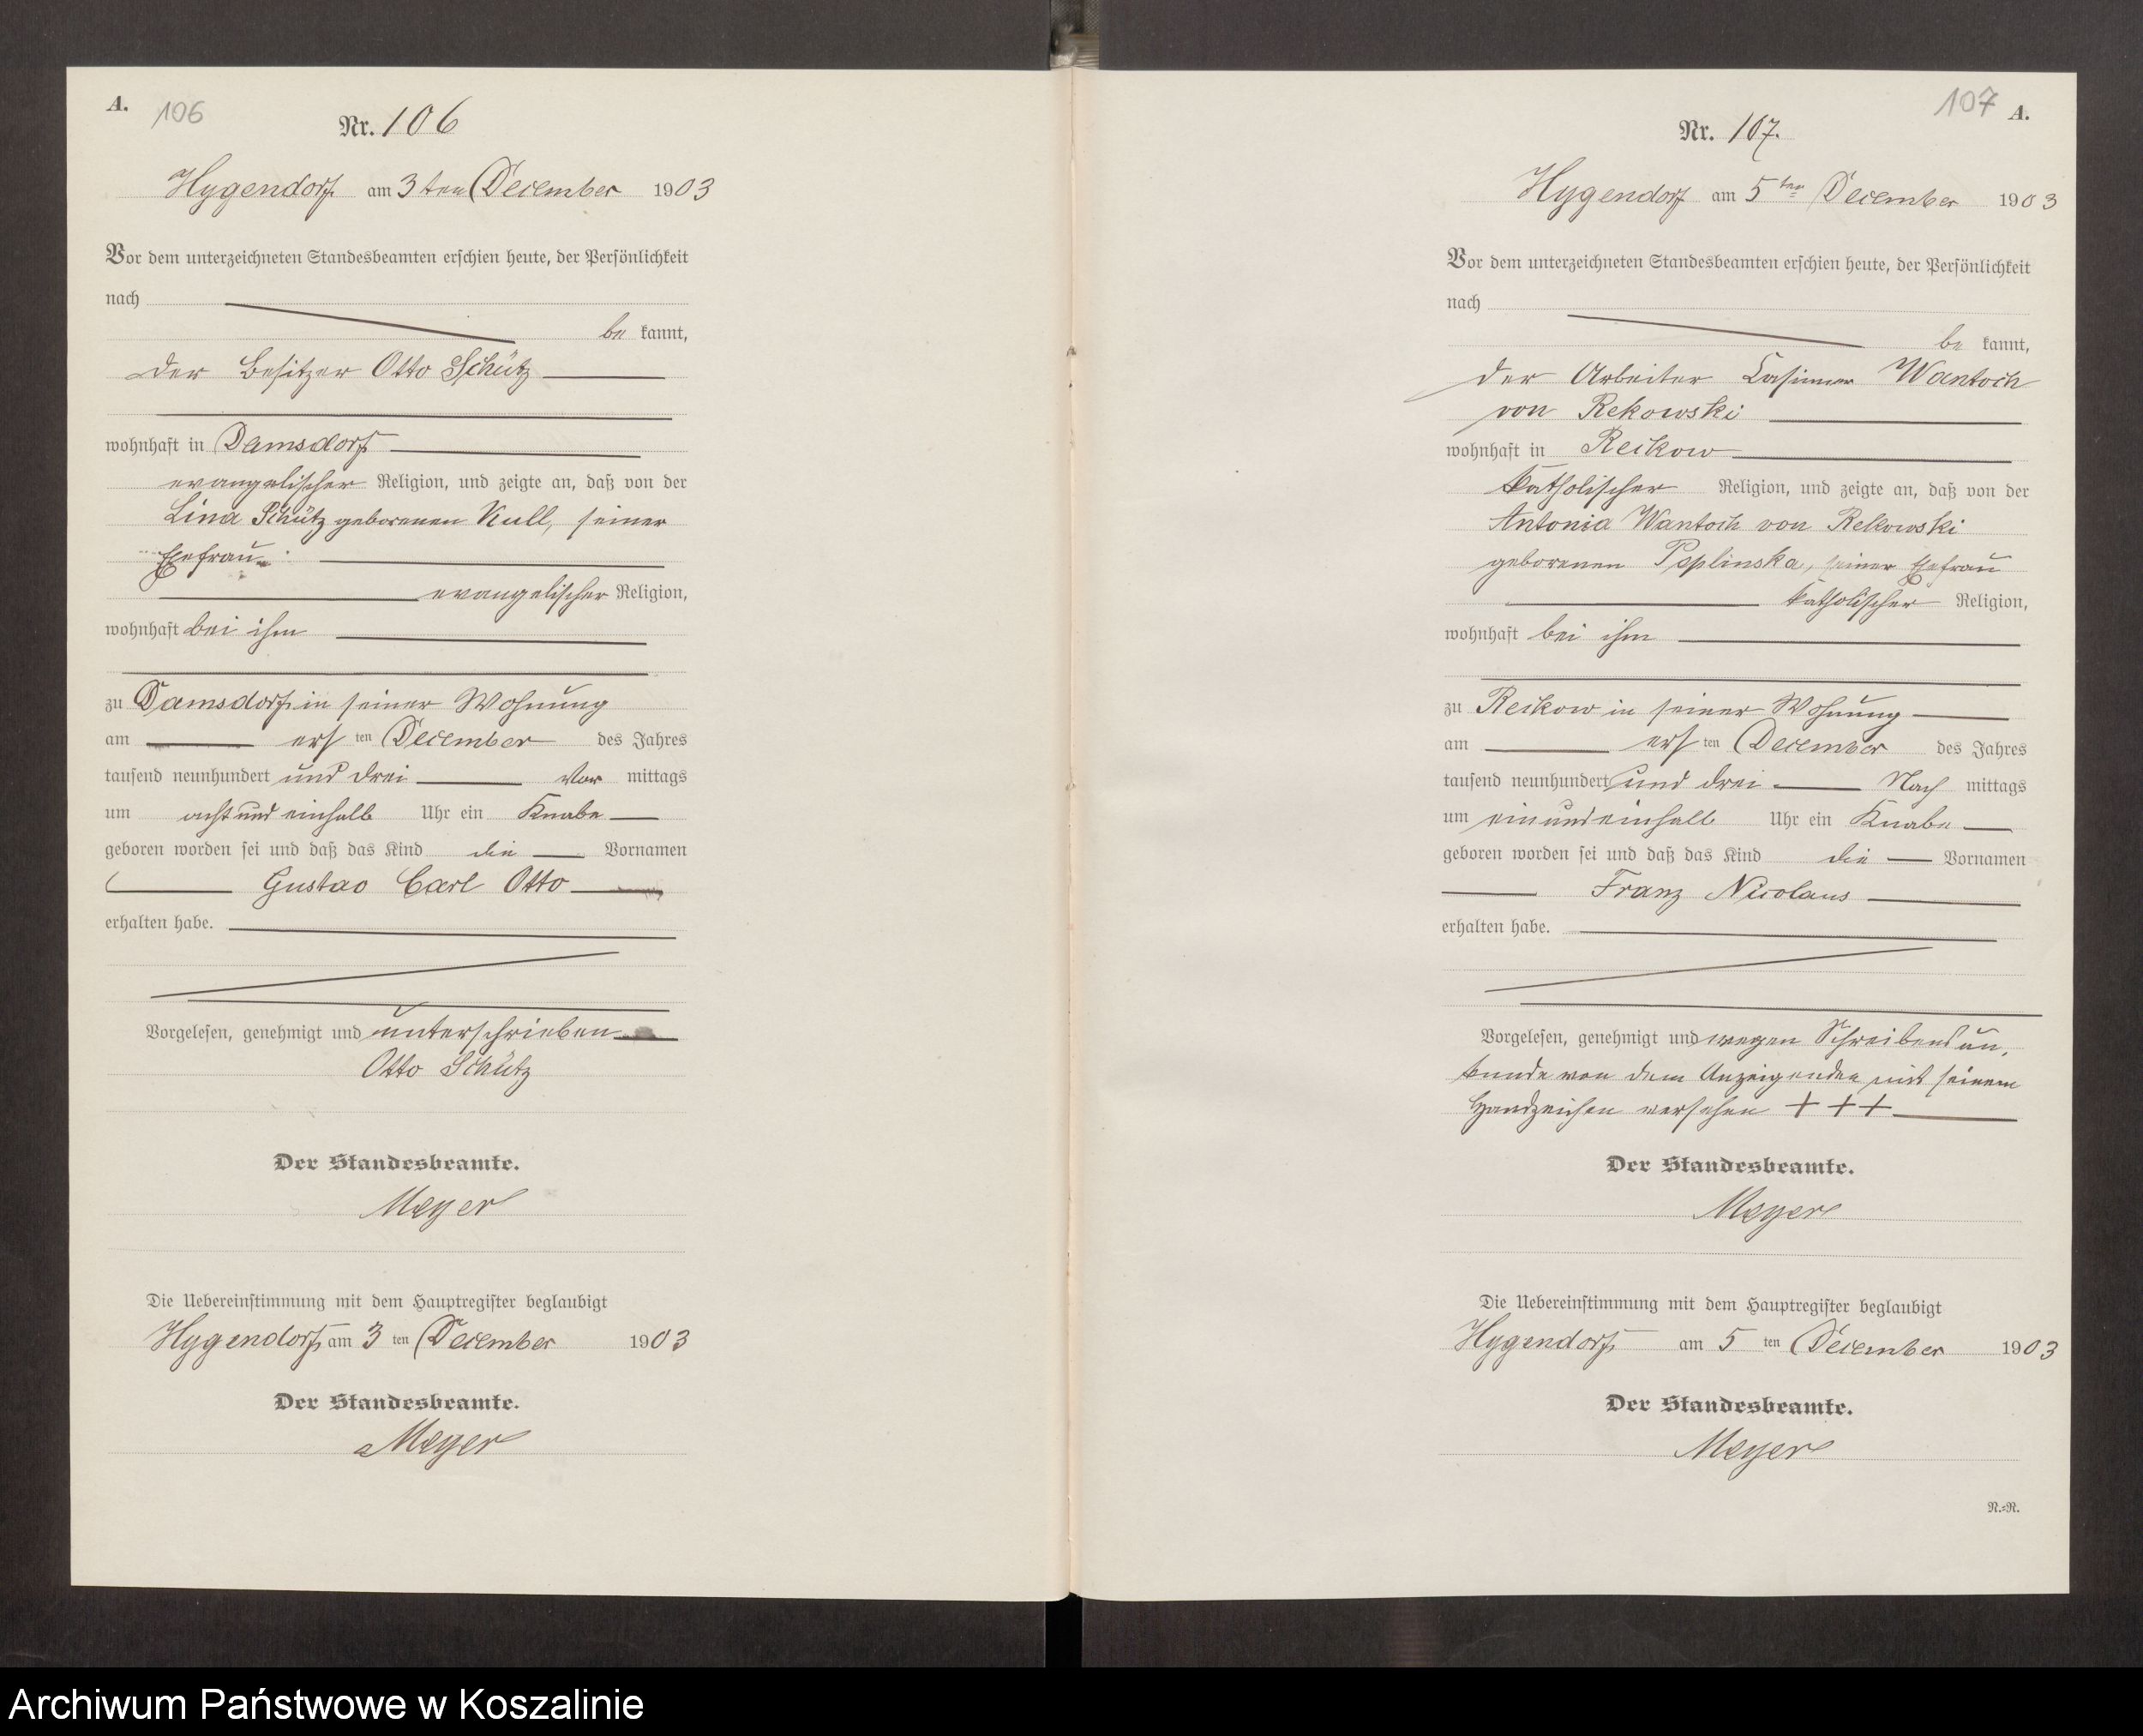 A. 106
Nr. 106
Hygendorf am 3ten December 1903
Vor dem unterzeichneten Standesbeamten erschien heute, der Persönlichkeit
nach
be kannt,
der Besitzer Otto Schütz
wohnhaft in Damsdorf
evangelischer Religion, und zeigte an, daß von der
Lina Schütz geborenen Kull, seiner
Ehefrau
evangelischer Religion,
wohnhaft bei ihm
zu Damsdorf in seiner Wohnung
am ersten December des Jahres
tausend neunhundert und drei Vor mittags
um acht und einhalb Uhr ein Knabe
geboren worden sei und daß das Kind die Vornamen
Gustav Carl Otto
erhalten habe.
Vorgelesen, genehmigt und unterschrieben
Otto Schütz
Der Standesbeamte.
Meyer
Die Uebereinstimmung mit dem Hauptregister beglaubigt
Hygendorf am 3 ten December 1903
Der Standesbeamte.
Meyer
107 A.
Nr. 107.
Hygendorf am 5ten December 1903
Vor dem unterzeichneten Standesbeamten erschien heute, der Persönlichkeit
nach
be kannt,
der Arbeiter Casimer Wantoch
von Rekowski
wohnhaft in Reckow
katholischer Religion, und zeigte an, daß von der
Antonia Wantoch von Rekowski
geborenen Peplinska, seiner Ehefrau
katholischer Religion,
wohnhaft bei ihm
zu Reckow in seiner Wohnung
am ersten December des Jahres
tausend neunhundert und drei Nach mittags
um ein und einhalb Uhr ein Knabe
geboren worden sei und daß das Kind die Vornamen
Franz Nicolaus
erhalten habe.
Vorgelesen, genehmigt und wegen Schreibensun,
kunde von dem Anzeigenden mit seinem
Handzeichen versehen + + +
Der Standesbeamte.
Meyer
Die Uebereinstimmung mit dem Hauptregister beglaubigt
Hygendorf am 5 ten December 1903
Der Standesbeamte.
Meyer
N.=N.
Archiwum Państwowe w Koszalinie